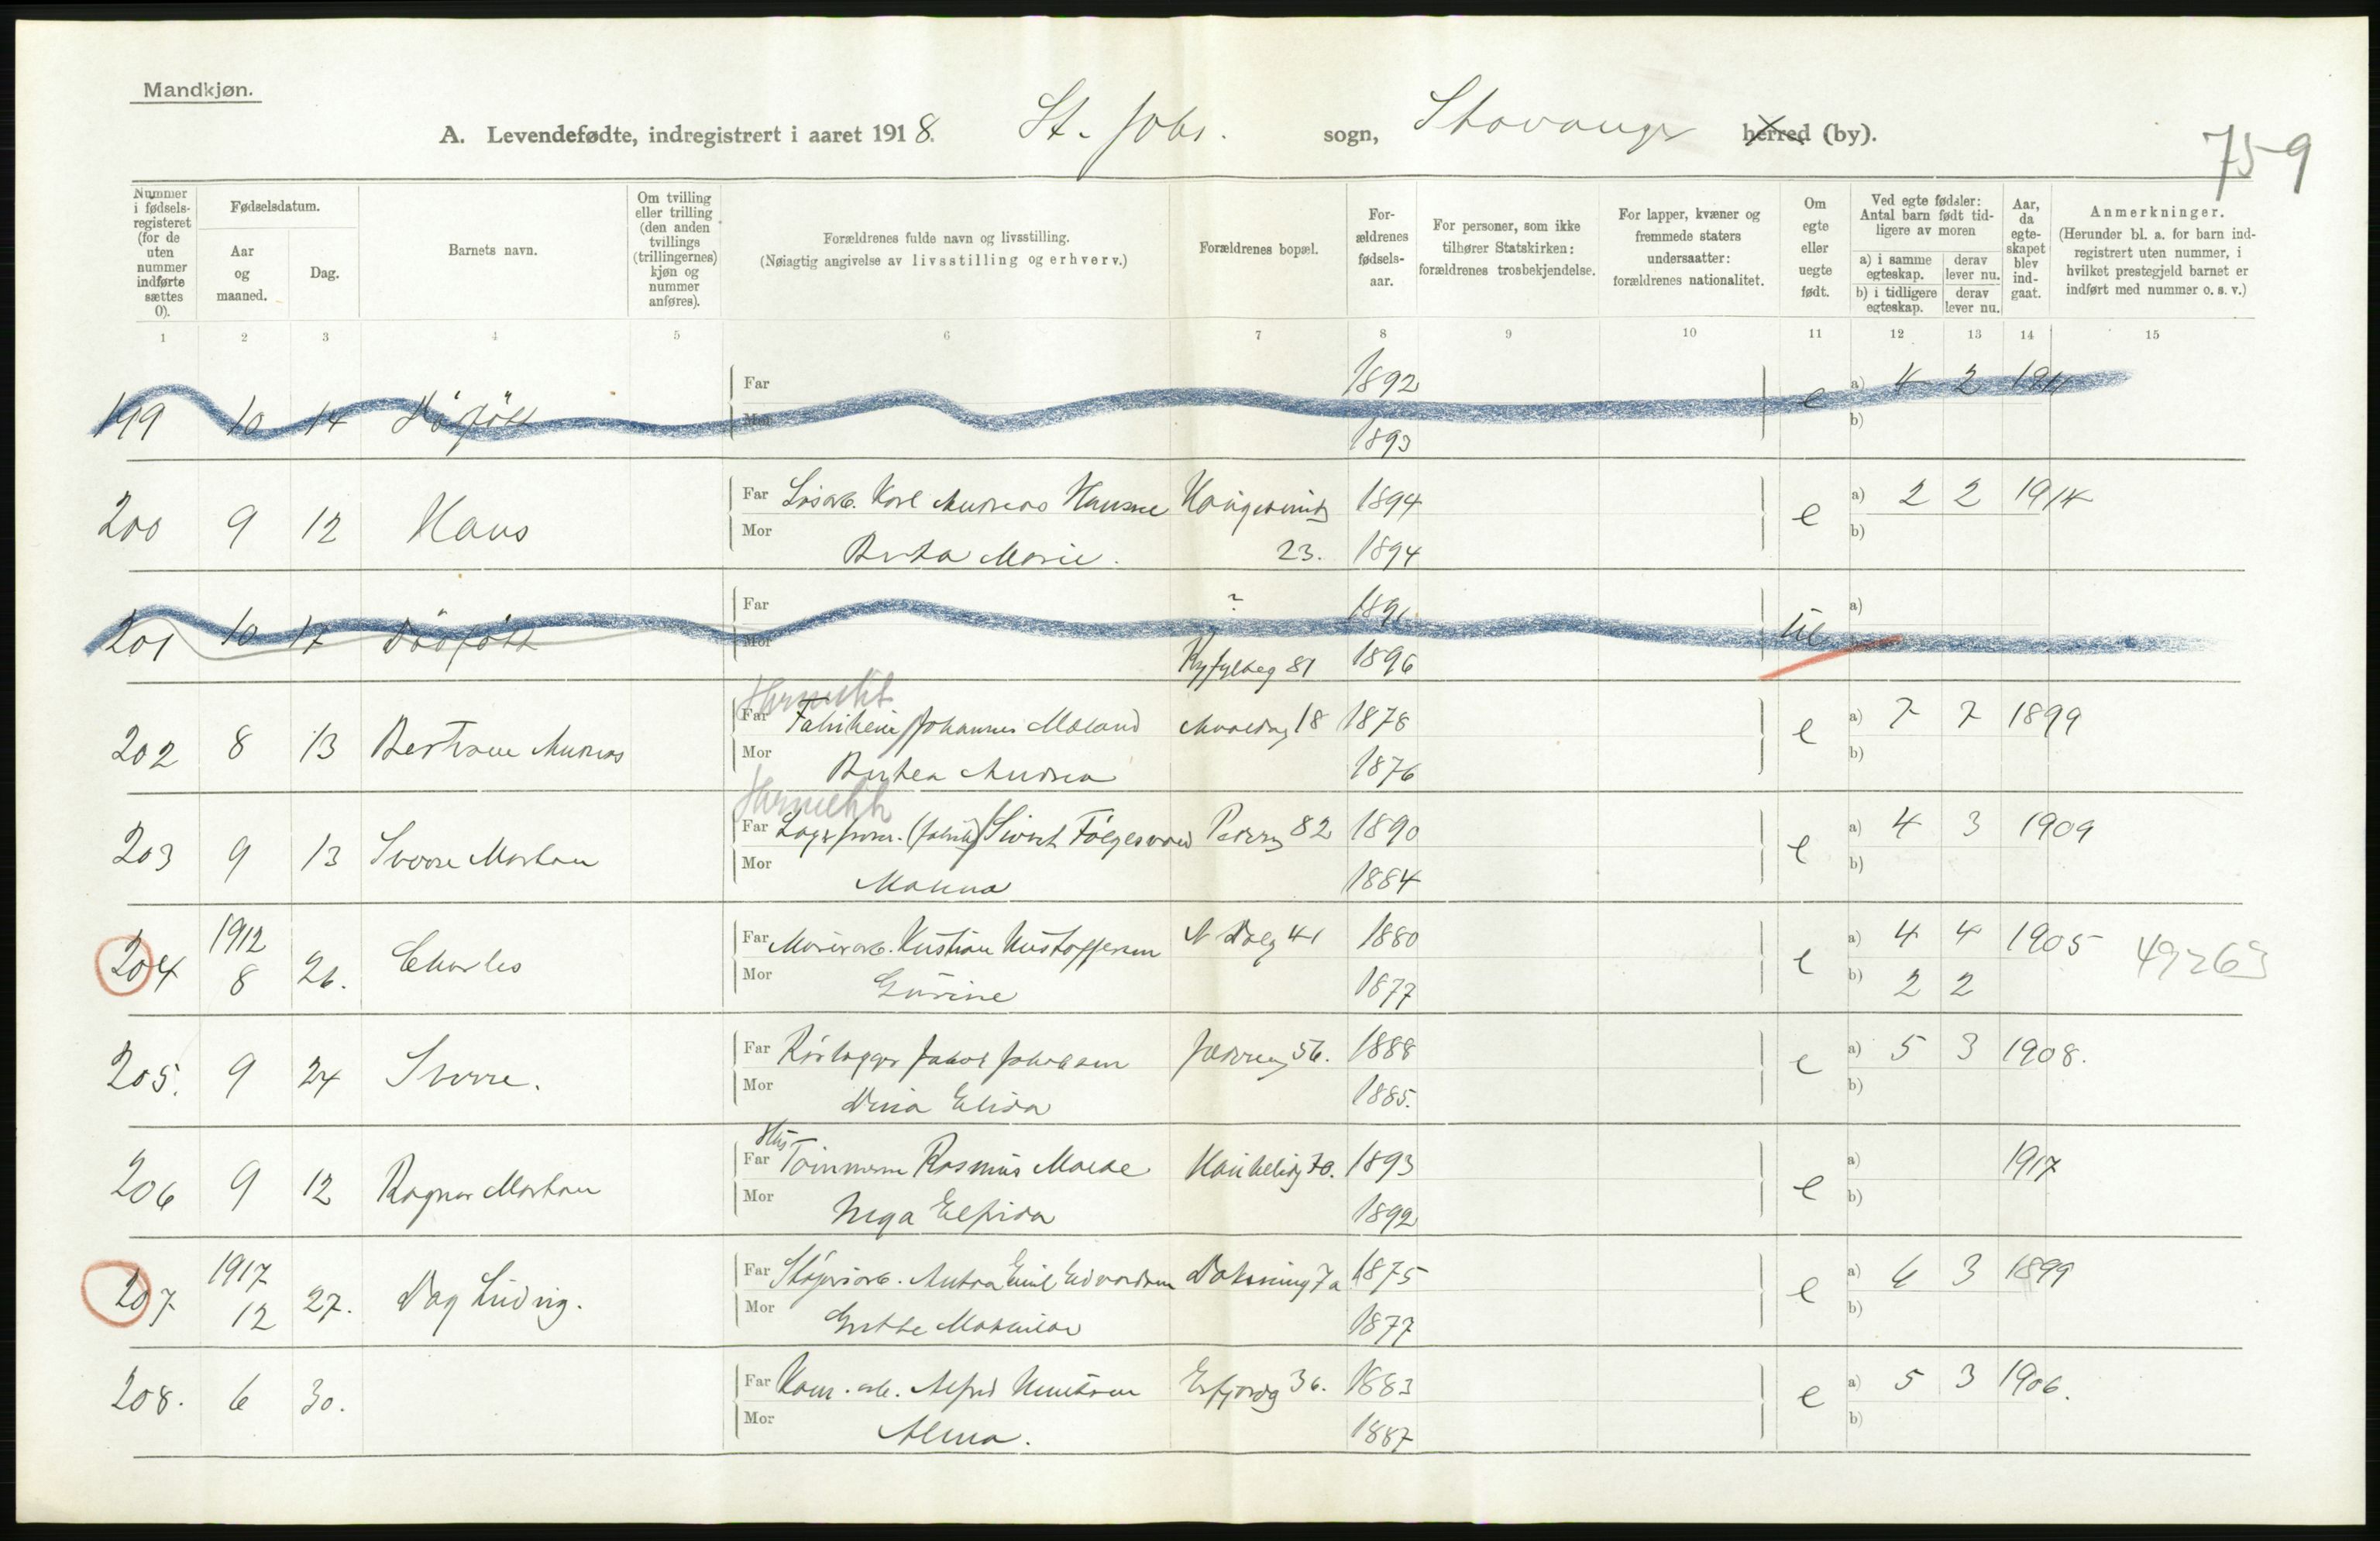 Mandkjøn.
A. Levendefødte, indregistrert i aaret 1918. St. Joh. sogn, Stavanger herred (by).
759
Nummer i fødsels-registeret (for de uten nummer indførte sættes 0).
Fødselsdatum.
Aar og maaned.
Dag.
Barnets navn.
Om tvilling eller trilling (den anden tvillings (trillingernes) kjøn og nummer anføres).
Forældrenes fulde navn og livsstilling.
(Nøiagtig angivelse av livsstilling og erhverv.)
Forældrenes bopæl.
For-ældrenes fødsels-aar.
For personer, som ikke tilhører Statskirken: forældrenes trosbekjendelse.
For lapper, kvæner og fremmede staters undersaatter: forældrenes nationalitet.
Om egte eller uegte født.
Ved egte fødsler: Antal barn født tid-ligere av moren
a) i samme egteskap. derav lever nu.
b) i tidligere egteskap. derav lever nu.
Aar, da egte-skapet blev ind-gaat.
Anmerkninger.
(Herunder bl. a. for barn ind-registrert uten nummer, i hvilket prestegjeld barnet er indført med nummer o. s. v.)
1 2 3 4 5 6 7 8 9 10 11 12 13 14 15
Far 1892
199 10 14 Dødfødt e a) 4 2 1911
Mor 1893 b)
Far Karl Andreas Hansen 23. 1894
200 9 12 Hans e a) 2 2 1914
Mor Berta Marie. 1894 b)
Far ? 1891
201 10 17 Dødfødt a)
Mor Ryfylkeg 81 1896
Far Johannes Maland 18 1878
202 8 13 Bertram Andreas e a) 7 7 1899
Mor Berthea Andrea 1876 b)
Far Sivert Pederg 82 1890
203 9 13 Sverre Martau e a) 4 3 1909
Mor Manna 1884 b)
Far Murerarb. Kristian Kristoffersen N. Dalg 41 1880
204 1912 8 26. Charles e a) 4 4 1905 49263
Mor Gurine 1877 b) 2 2
Far Rørlægger Jakob Jakobsen Jæderg 56. 1888
205. 9 24 Sverre. e a) 5 3 1908.
Mor Dina Elida 1885. b)
Hus
Far Tømmerm Rasmus Maele Haukeligt 70. 1893
206 9 12 Ragnar Martau e a) 1917
Mor Inga Elfrida 1892 b)
Far Anton Emil Edvardsen 7a 1875
207 1917 12 27. Dag Ludvig. e a) 6 3 1899
Mor Grethe Mathilde 1877 b)
Far Kom. arb. Alfred Knutsen Erfjordg 36. 1883
208. 6 30. e a) 5 3 1906.
Mor Alma. 1887 b)